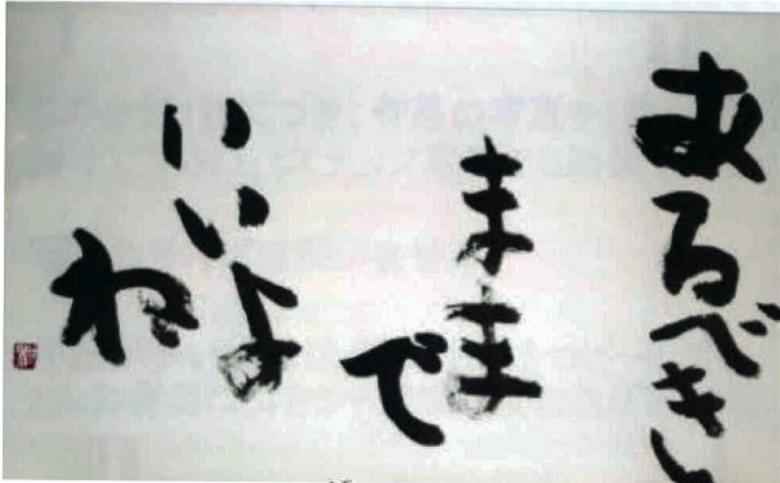 あるべき
まま
で
いいよ
ね